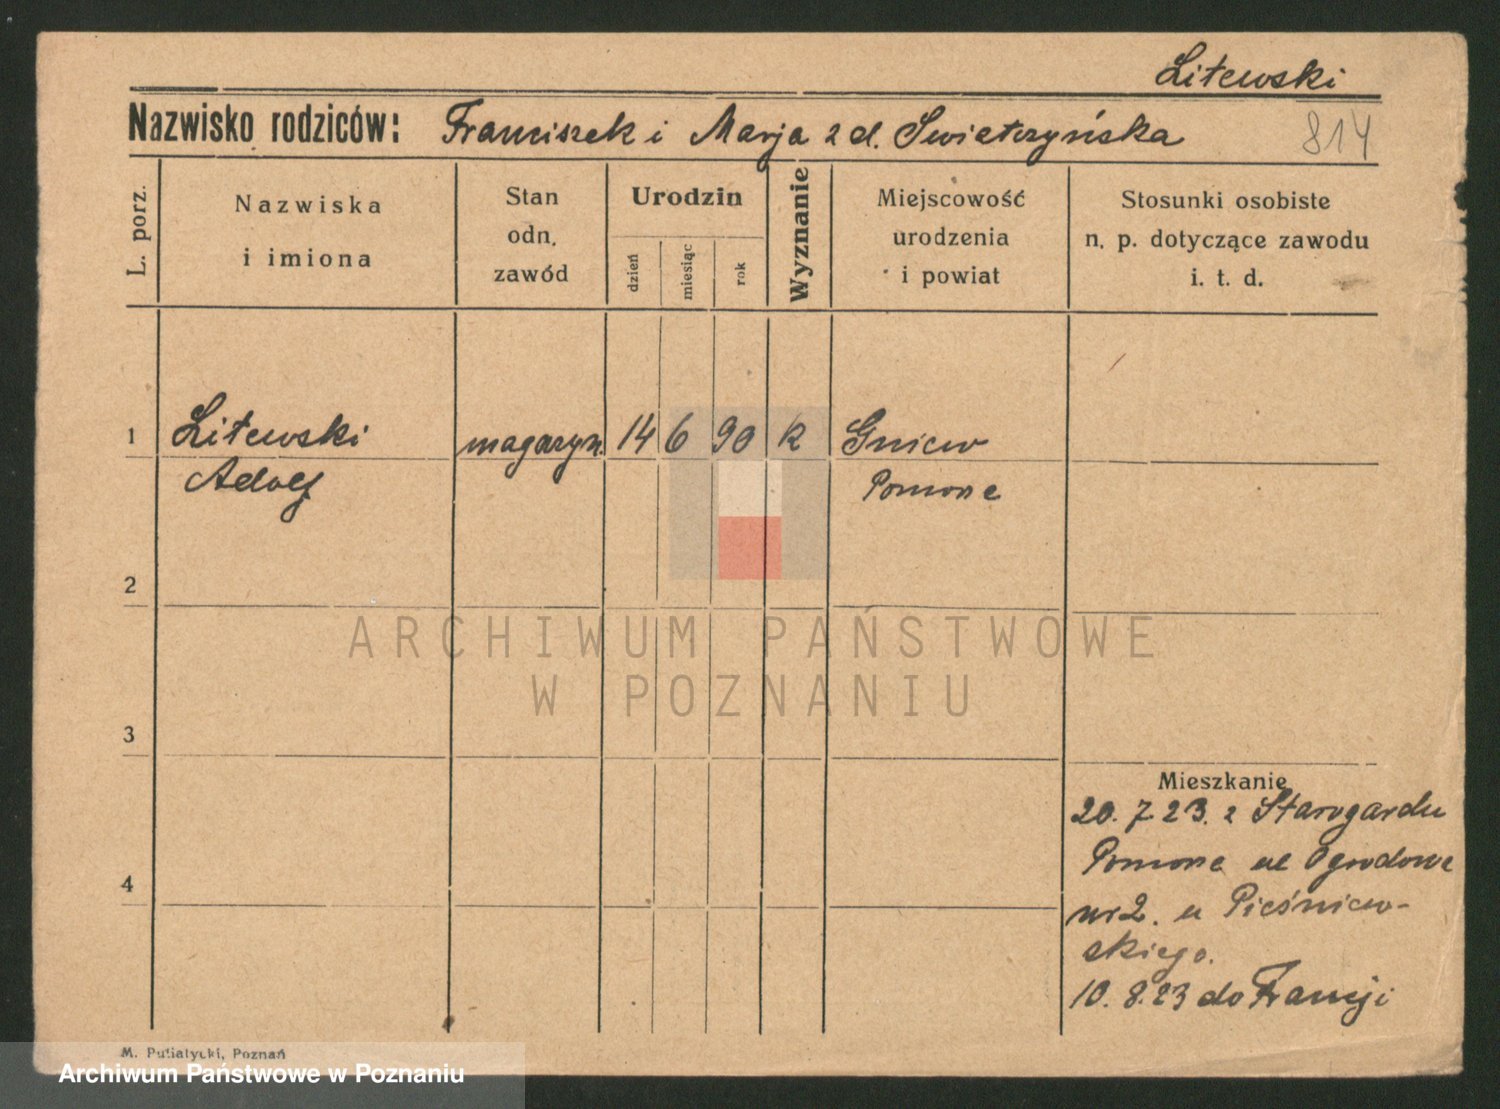 Litewski
Nazwisko rodziców: Franciszek i Marja z d. Swietczyńska
814
L. porz.
Nazwiska
i imiona
Stan
odn.
zawód
Urodzin
dzień
miesiąc
rok
Wyznanie
Miejscowość
urodzenia
i powiat
Stosunki osobiste
n. p. dotyczące zawodu
i. t. d.
1
Litewski magazyn. 14 6 90 k Gniew
Adolf Pomorze
2
ARCHIWUM PAŃSTWOWE
W POZNANIU
3
Mieszkanie
20. 7 23. z Starogardu
Pomorze ul Ogrodowa
4
nr 2. u Pieśniew-
skiego.
10. 8. 23 do Francji
M. Putiatycki, Poznań
Archiwum Państwowe w Poznaniu